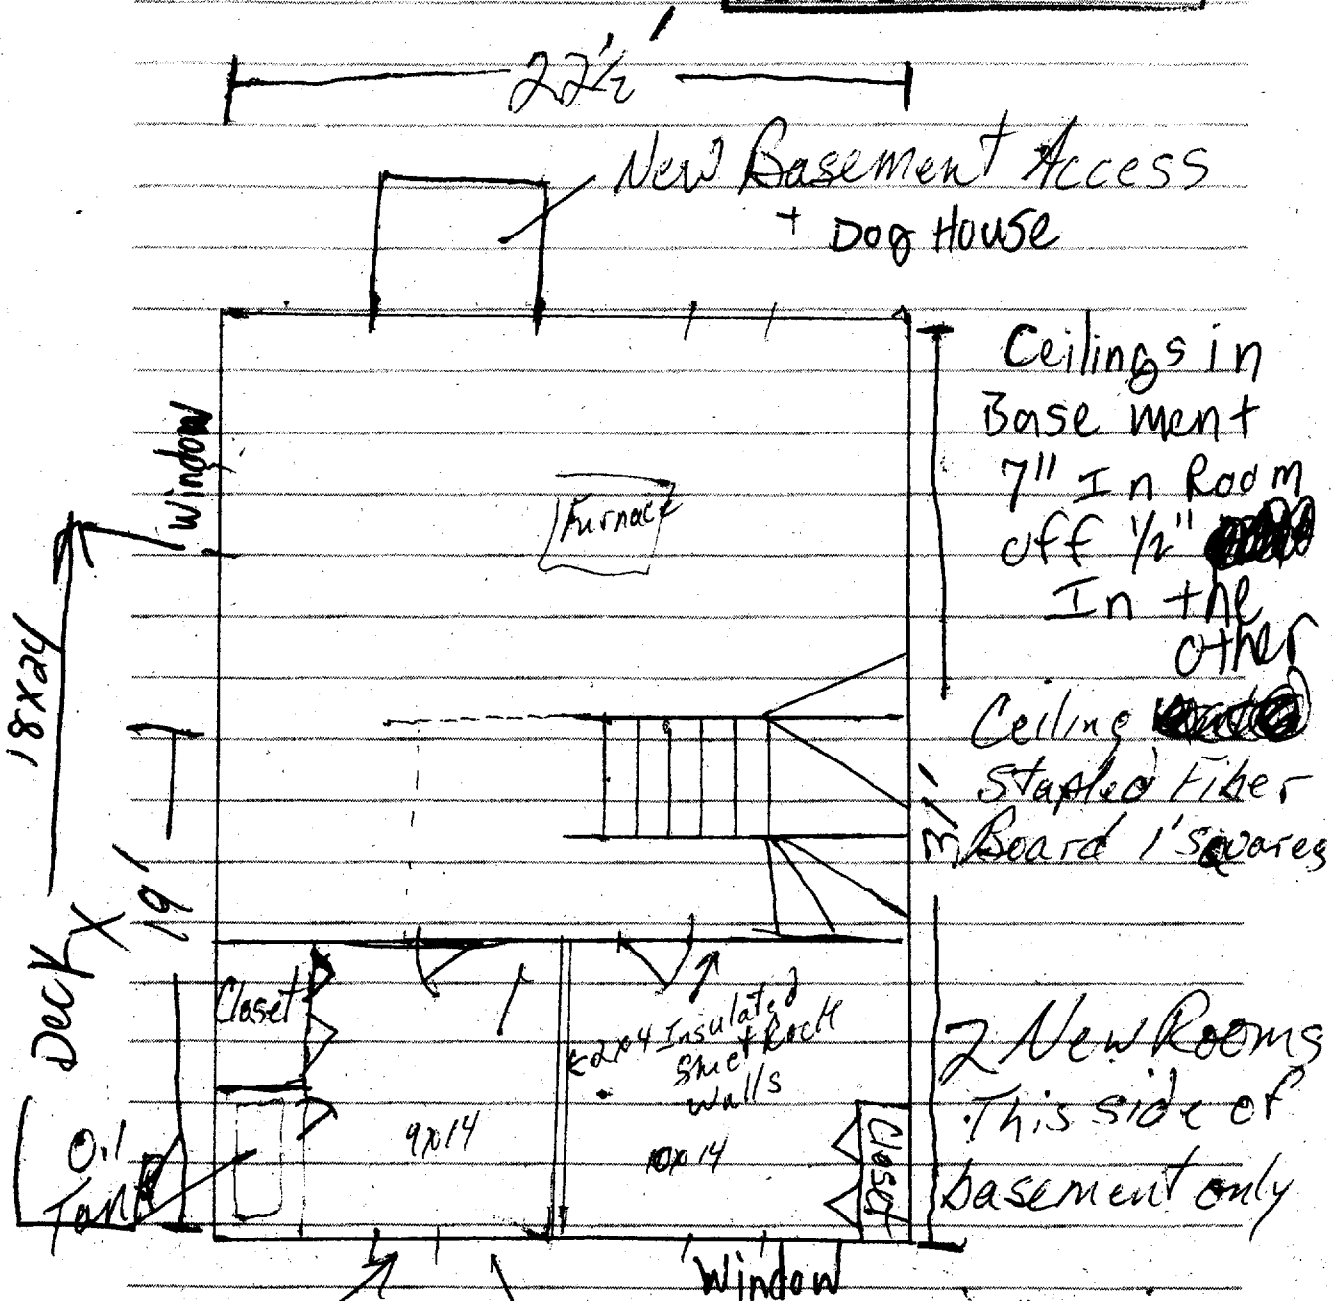 22½'
New Basement Access
+ Dog House
Ceilings in
Basement
7" In Room
off 1/2"
In the
other
Ceiling
Stapled Fiber
Board 1' Squares
31'
Window
Furnace
18x24
Deck
19'
Closet
2x4 Insulated
Sheet Rock
Walls
9x14
10x14
Closet
Oil
Tank
2 New Rooms
This side of
basement only
Window